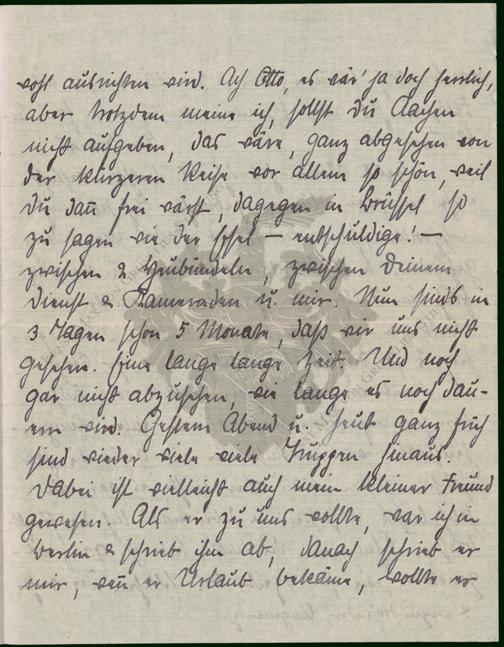 wohl ausrichten wird. Ach Otto, es wär ja doch herrlich,
aber trotzdem meine ich, sollst Du Aachen
nicht aufgeben, das wäre, ganz abgesehen von
der kürzeren Reise vor allem so schön, weil
Du dann frei wärst, dagegen in Brüssel so
zu sagen wie der Esel – entschuldige! –
zwischen 2 Heubündeln, zwischen Deinem
Dienst & Kameraden u. mir. Nun sinds in
3 Tagen schon 5 Monate, daß wir uns nicht
gesehen. Eine lange lange Zeit. Und noch
gar nicht abzusehen, wie lange es noch dau-
ern wird. Gestern Abend u. heut ganz früh
sind wieder viele viele Truppen hinaus.
Dabei ist vielleicht auch mein kleiner Freund
gewesen. Als er zu uns wollte, war ich in
Berlin & schrieb ihm ab, danach schrieb er
mir, wenn er Urlaub bekäme, wollte er